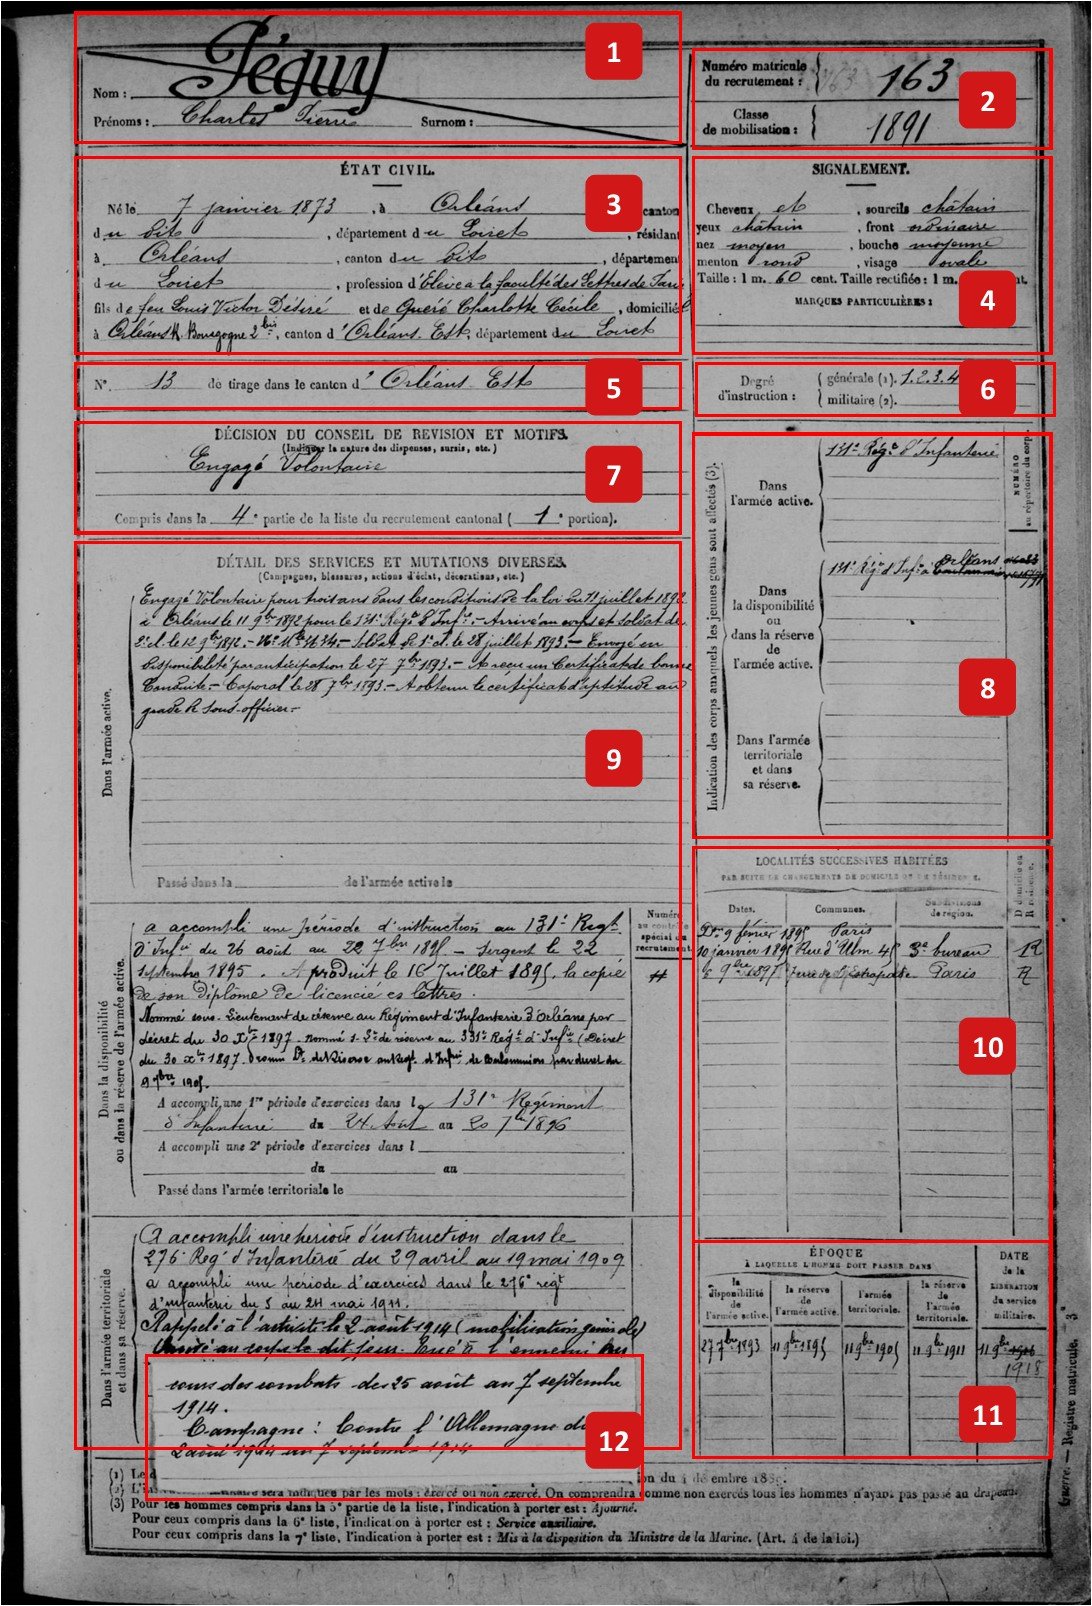 Péguy
1
Nom :
Prénoms : Charles Pierre Surnom :
Numéro matricule
du recrutement : 163
2
Classe
de mobilisation : 1891
ÉTAT CIVIL.
3
Né le 7 janvier 1873, à Orléans, canton
du dit, département du Loiret, résidant
à Orléans, canton du dit, département
du Loiret, profession d'Élève à la faculté des Lettres de
fils de feu Louis Victor Désiré et de Queré Charlotte Cécile, domiciliés
à Orléans R. Bourgogne 2 bis, canton d'Orléans Est, département du Loiret
SIGNALEMENT.
Cheveux et, sourcils châtain
yeux châtain, front ordinaire
nez moyen, bouche moyenne
menton rond, visage ovale
Taille : 1 m. 60 cent. Taille rectifiée : 1 m.
MARQUES PARTICULIÈRES :
4
N° 13 de tirage dans le canton d'Orléans Est
5
Degré
d'instruction :
générale (1). 1.2.3.4
militaire (2).
6
DÉCISION DU CONSEIL DE REVISION ET MOTIFS.
(Indiquer la nature des dispenses, sursis, etc.)
Engagé Volontaire
7
Compris dans la 4e partie de la liste du recrutement cantonal ( 1e portion).
Indication des corps auxquels les jeunes gens sont affectés (3).
NUMÉRO
au répertoire du corps.
Dans
l'armée active.
131e Régt d'Infanterie
Dans
la disponibilité
ou
dans la réserve
de
l'armée active.
131e Régt d'Infie à Orléans
8
Dans l'armée
territoriale
et dans
sa réserve.
DÉTAIL DES SERVICES ET MUTATIONS DIVERSES.
(Campagnes, blessures, actions d'éclat, décorations, etc.)
Dans l'armée active.
Engagé Volontaire pour trois ans dans les conditions de la loi du 11 juillet 1892
à Orléans le 11 9bre 1892 pour le 131e Régt d'Infie. - Arrivé au corps et soldat de
2e cl. le 12 9bre 1892. - Soldat de 1e cl. le 28 juillet 1893 - Envoyé en
disponibilité par anticipation le 27 7bre 1893. - A reçu un Certificat de bonne
Conduite. - Caporal le 28 7bre 1893. - A obtenu le certificat d'aptitude au
grade de sous-officier. -
9
Passé dans la de l'armée active le
LOCALITÉS SUCCESSIVES HABITÉES
PAR SUITE DE CHANGEMENTS DE DOMICILE OU DE RÉSIDENCE.
D domicile ou
R résidence.
Dates. Communes. Subdivisions
de région.
9 février 1895 Paris
10 janvier 1895 Rue d'Ulm 45 3e bureau R
9bre 1897 Paris R
10
Dans la disponibilité
ou dans la réserve de l'armée active.
Numéro
au contrôle
spécial du
recrutement.
a accompli une période d'instruction au 131e Régt
d'Infie du 26 août au 22 7bre 1895 - Sergent le 22
septembre 1895. A produit le 16 Juillet 1895, la copie
de son diplôme de licencié es lettres.
Nommé sous-Lieutenant de réserve au Régiment d'Infanterie d'Orléans par
décret du 30 Xbre 1897. nommé s-Lt de réserve au 331e Régt d'Infie (Décret
du 30 Xbre 1897. Promu Lt de Réserve au Régt d'Infie de Coulommiers par décret du
9 9bre 1905.
A accompli une 1re période d'exercices dans le 131e Régiment
d'Infanterie du 24 Août au 20 7bre 1896
A accompli une 2e période d'exercices dans l
du au
Passé dans l'armée territoriale le
Dans l'armée territoriale
et dans sa réserve.
A accompli une période d'instruction dans le
276e Régt d'Infanterie du 29 avril au 19 mai 1909
a accompli une période d'exercices dans le 276e régt
d'infanterie du 5 au 24 mai 1911.
Rappelé à l'activité le 2 août 1914 (mobilisation générale)
Arrivé au corps le dit jour. Tué à l'ennemi au
cours des combats des 25 août au 7 septembre
1914.
Campagne : Contre l'Allemagne du
2 août 1914 au 7 septembre 1914
12
ÉPOQUE
À LAQUELLE L'HOMME DOIT PASSER DANS
la
disponibilité
de
l'armée active.
la réserve
de
l'armée active.
l'armée
territoriale.
la réserve
de
l'armée
territoriale.
DATE
de la
LIBÉRATION
du service
militaire.
27 7bre 1893 11 9bre 1895 11 9bre 1905 11 9bre 1911 11 9bre 1916
1918
11
(1) Le d on du 4 décembre 1889.
(2) L'ins sera indiquée par les mots : exercé ou non exercé. On comprendra comme non exercés tous les hommes n'ayant pas passé au drapeau.
(3) Pour les hommes compris dans la 5e partie de la liste, l'indication à porter est : Ajourné.
Pour ceux compris dans la 6e liste, l'indication à porter est : Service auxiliaire.
Pour ceux compris dans la 7e liste, l'indication à porter est : Mis à la disposition du Ministre de la Marine. (Art. 4 de la loi.)
Guerre. — Registre matricule. 3